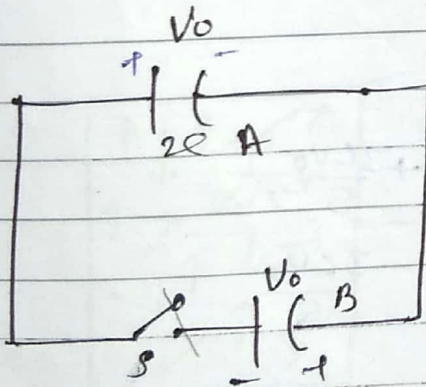 V0
+ -
2C A
V0
B
S
- +